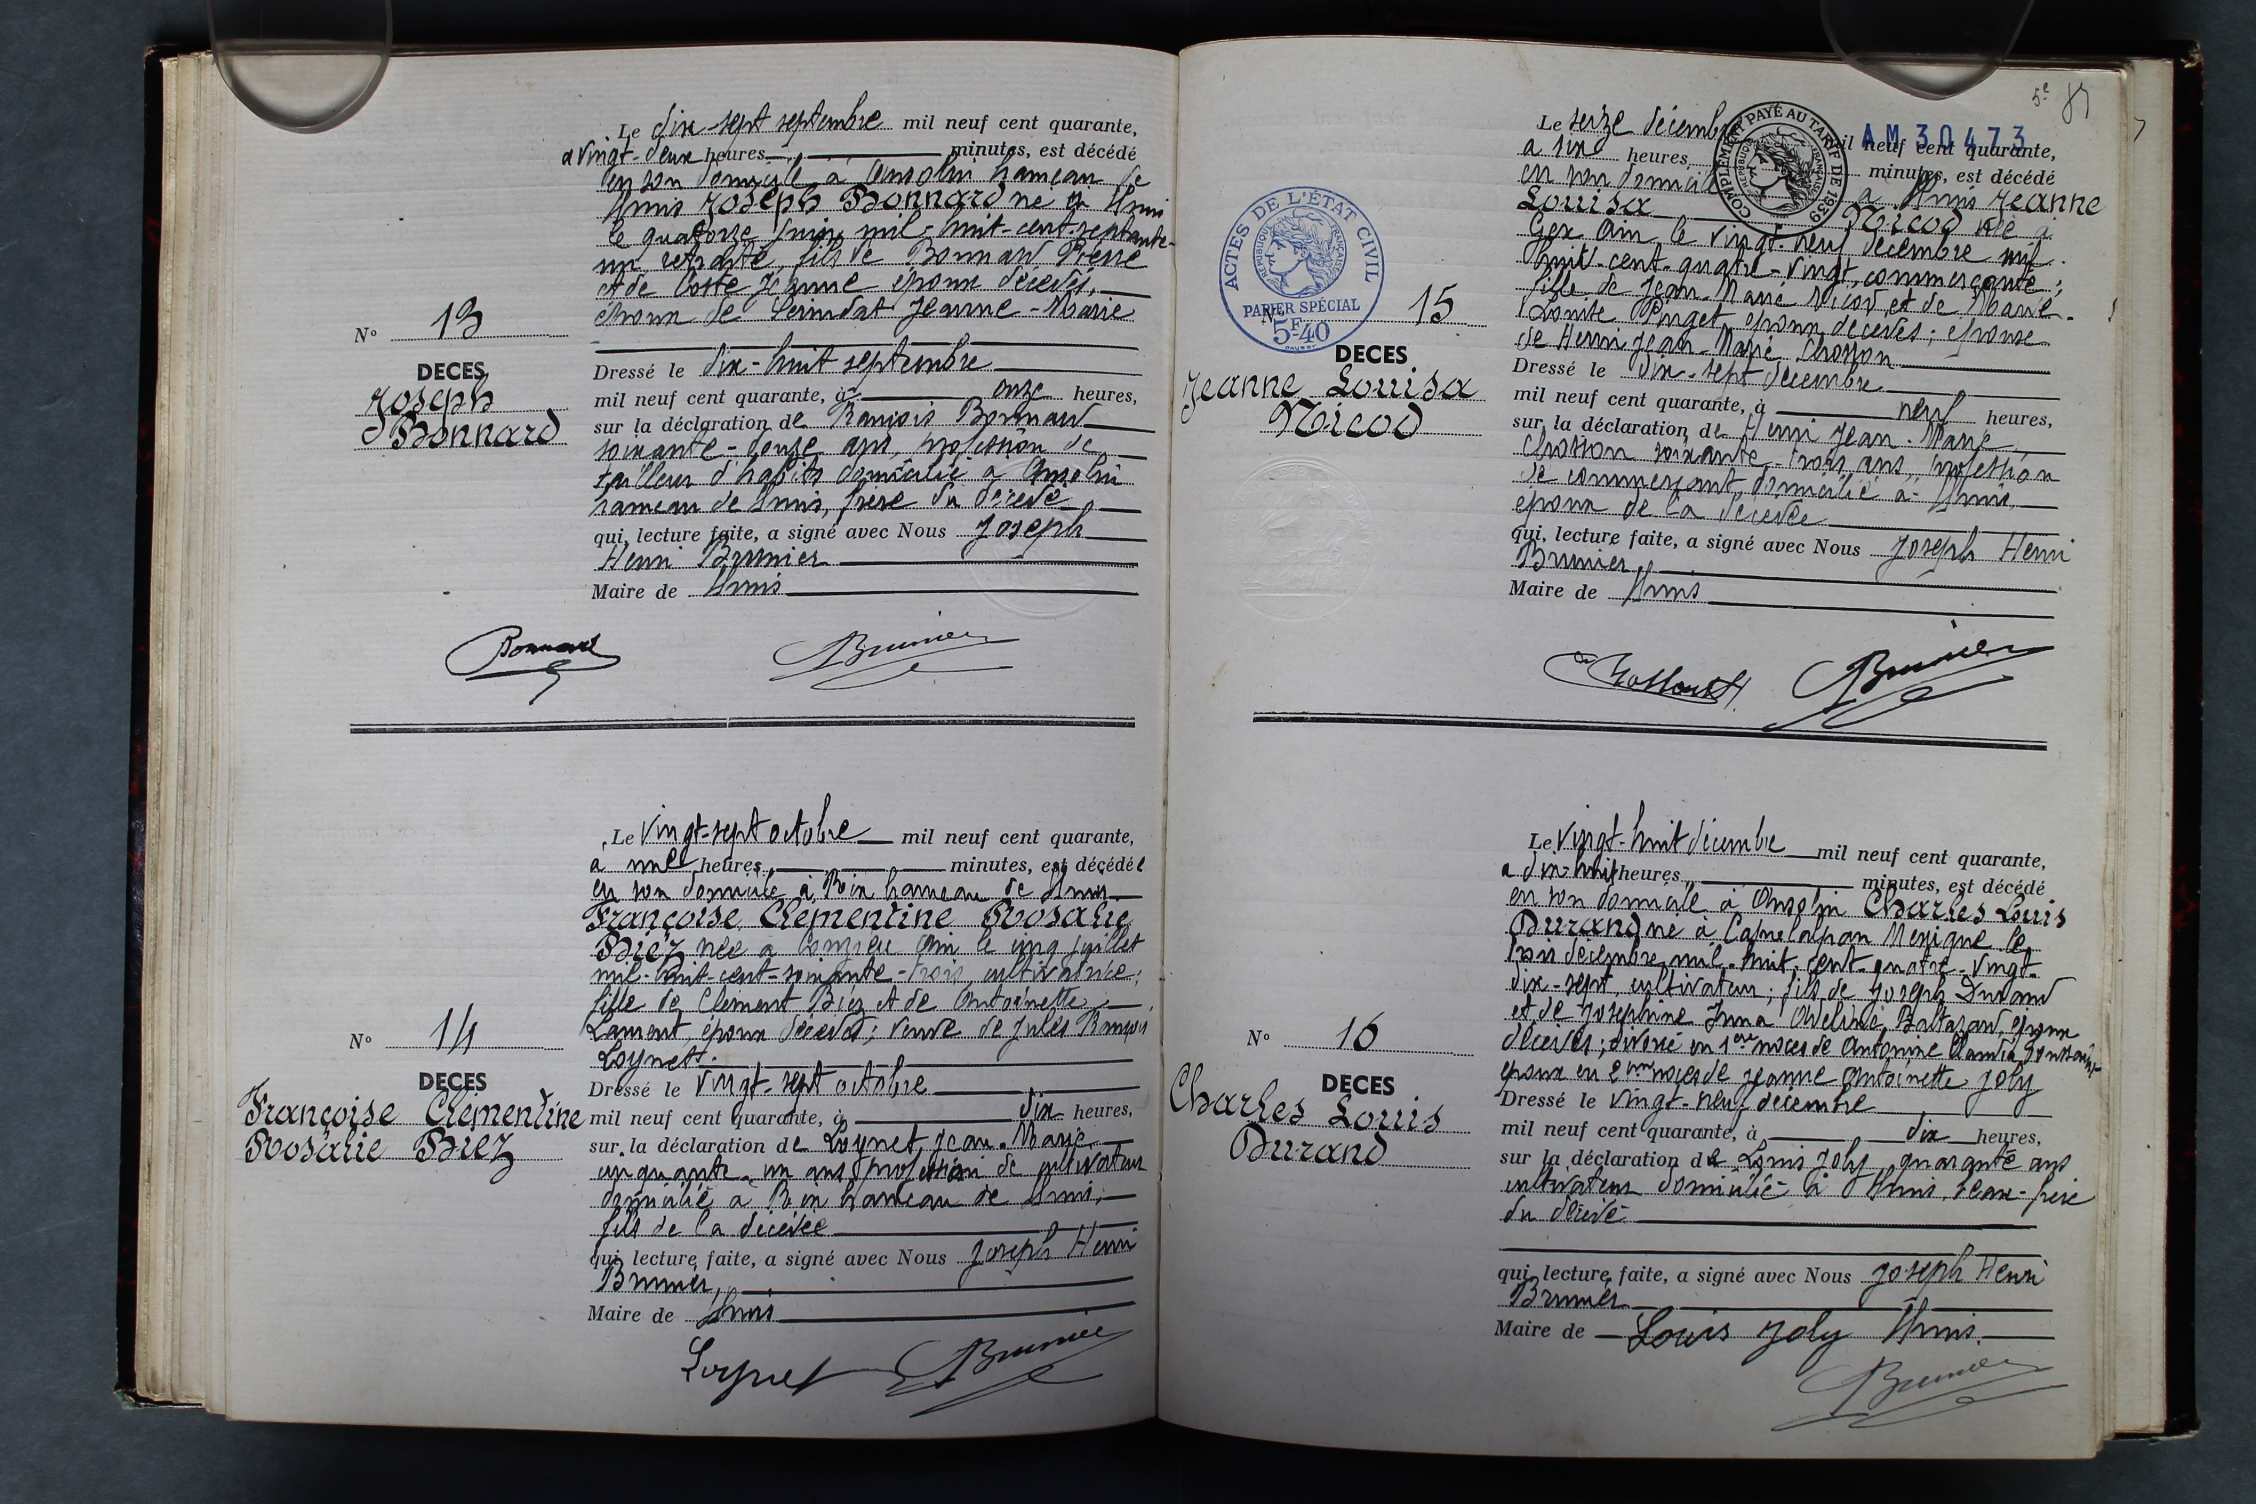 Le dix-sept septembre mil neuf cent quarante,
à vingt-deux heures minutes, est décédé
en son domicile à Ansolin hameau de
Joseph Bonnard né à
le quatorze juin mil-huit-cent-septante-
un, retraité, fils de Bonnard Pierre
et de Coste Jeanne époux décédés,
époux de Jeanne-Marie
N° 13
DECES
Joseph
Bonnard
Dressé le dix-huit septembre
mil neuf cent quarante, à onze heures,
sur la déclaration de François Bonnard
soixante-douze ans, profession de
tailleur d'habits domicilié à Ansolin
hameau de frère du décédé
qui, lecture faite, a signé avec Nous Joseph
Henri Brunier
Maire de
Bonnard Brunier
Le vingt-sept octobre mil neuf cent quarante,
à une heures minutes, est décédée
en son domicile à hameau de
Françoise Clémentine Rosalie
Biez née à Conzieu Ain le cinq juillet
mil-huit-cent-soixante-trois, cultivatrice;
fille de Clément Biez et de Antoinette
époux décédés; veuve de Jules François
Loynet.
N° 14
DECES
Françoise Clémentine
Rosalie Biez
Dressé le vingt-sept octobre
mil neuf cent quarante, à dix heures,
sur la déclaration de Loynet Jean-Marie
cinquante-un ans profession de cultivateur
domicilié à hameau de
fils de la décédée
qui, lecture faite, a signé avec Nous Joseph Henri
Brunier,
Maire de
Loynet Brunier
5e
AM 30473
COMPLEMENT PAYÉ AU TARIF DE 1939
RÉPUBLIQUE FRANÇAISE
Le seize décembre mil neuf cent quarante,
à six heures minutes, est décédé
en son domicile à Jeanne
Louisa Nicod née à
Gex Ain le vingt-neuf décembre mil
huit-cent-quatre-vingt, commerçante;
fille de Jean-Marie Nicod et de Marie-
Louise Ponget, époux décédés; épouse
de Henri Jean-Marie Chosson
ACTES DE L'ÉTAT CIVIL
RÉPUBLIQUE FRANÇAISE
PAPIER SPÉCIAL
5F40
N° 15
DECES
Jeanne Louisa
Nicod
Dressé le dix-sept décembre
mil neuf cent quarante, à neuf heures,
sur la déclaration de Henri Jean-Marie
Chosson soixante-trois ans, profession
de commerçant domicilié à
époux de la décédée
qui, lecture faite, a signé avec Nous Joseph Henri
Brunier,
Maire de
Brunier
Le vingt-huit décembre mil neuf cent quarante,
à dix-huit heures minutes, est décédé
en son domicile à Ansolin Charles Louis
Durand né à Mexique le
trois décembre mil-huit-cent-quatre-vingt-
dix-sept, cultivateur; fils de Joseph Durand
et de Joséphine époux
décédés; divorcé en 1ères noces de Antonine Claudia
époux en 2èmes noces de Jeanne Antoinette Joly
N° 16
DECES
Charles Louis
Durand
Dressé le vingt-neuf décembre
mil neuf cent quarante, à dix heures,
sur la déclaration de Louis Joly quarante ans
cultivateur domicilié à beau-frère
du décédé
qui, lecture faite, a signé avec Nous Joseph Henri
Brunier
Maire de Louis Joly
Brunier